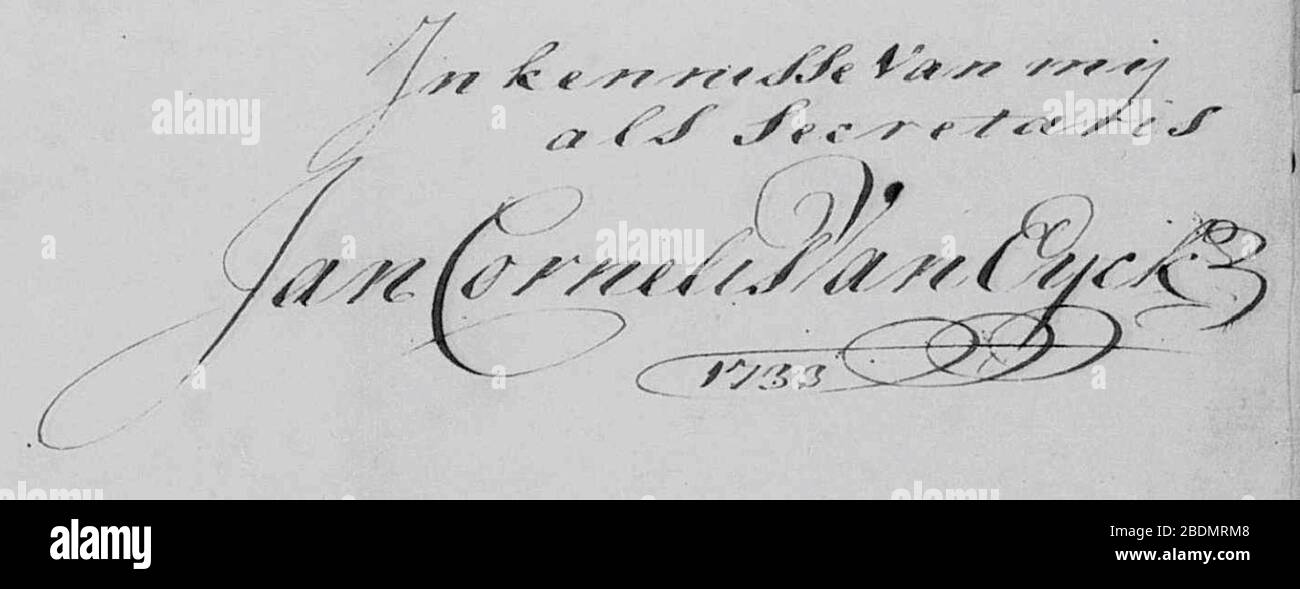 In kennisse Van mij
als Secretaris
Jan Cornelis Van Eyck
1733
alamy
alamy
alamy
Image ID: 2BDMRM8
www.alamy.com